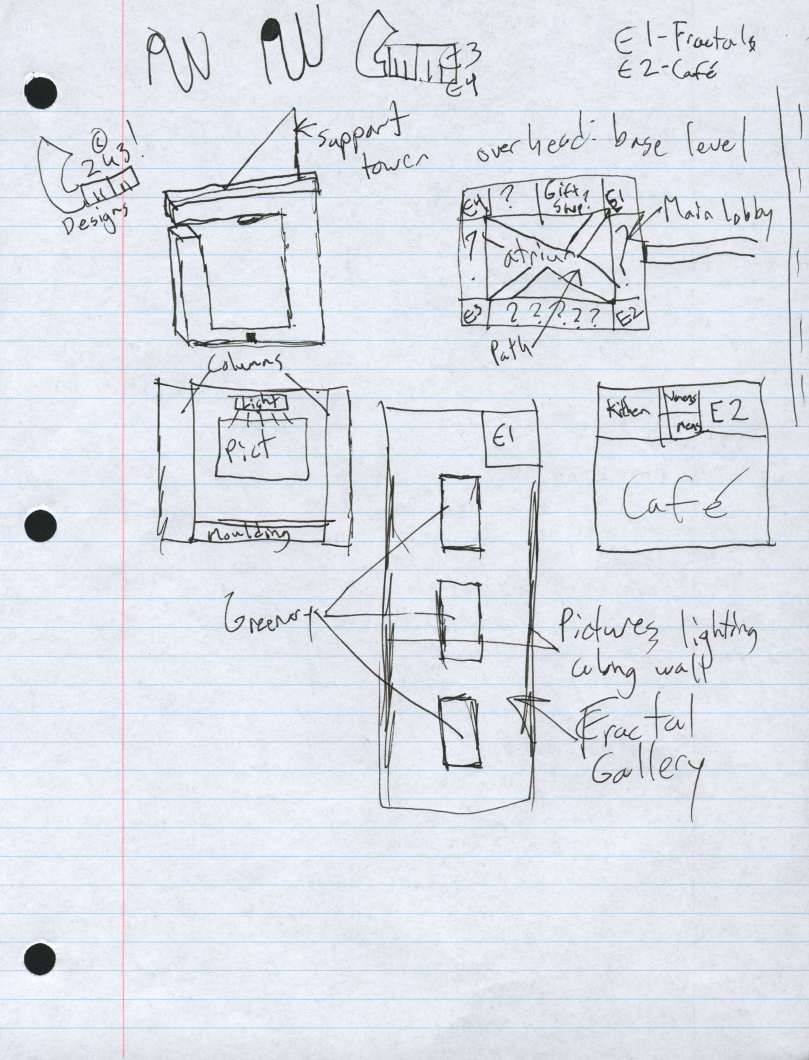 E3
E4
E1-Fractals
E2-Café
243!
Designs
Support
tower
overhead: base level
E4
?
Gift
Shop?
E1
Main lobby
?
atrium
?
E3
? ? ? ? ?
E2
Path
Columns
Light
Pict
Moulding
E1
Kitchen
Womens
Mens
E2
Café
Greenery
Pictures, lighting
along wall
Fractal
Gallery